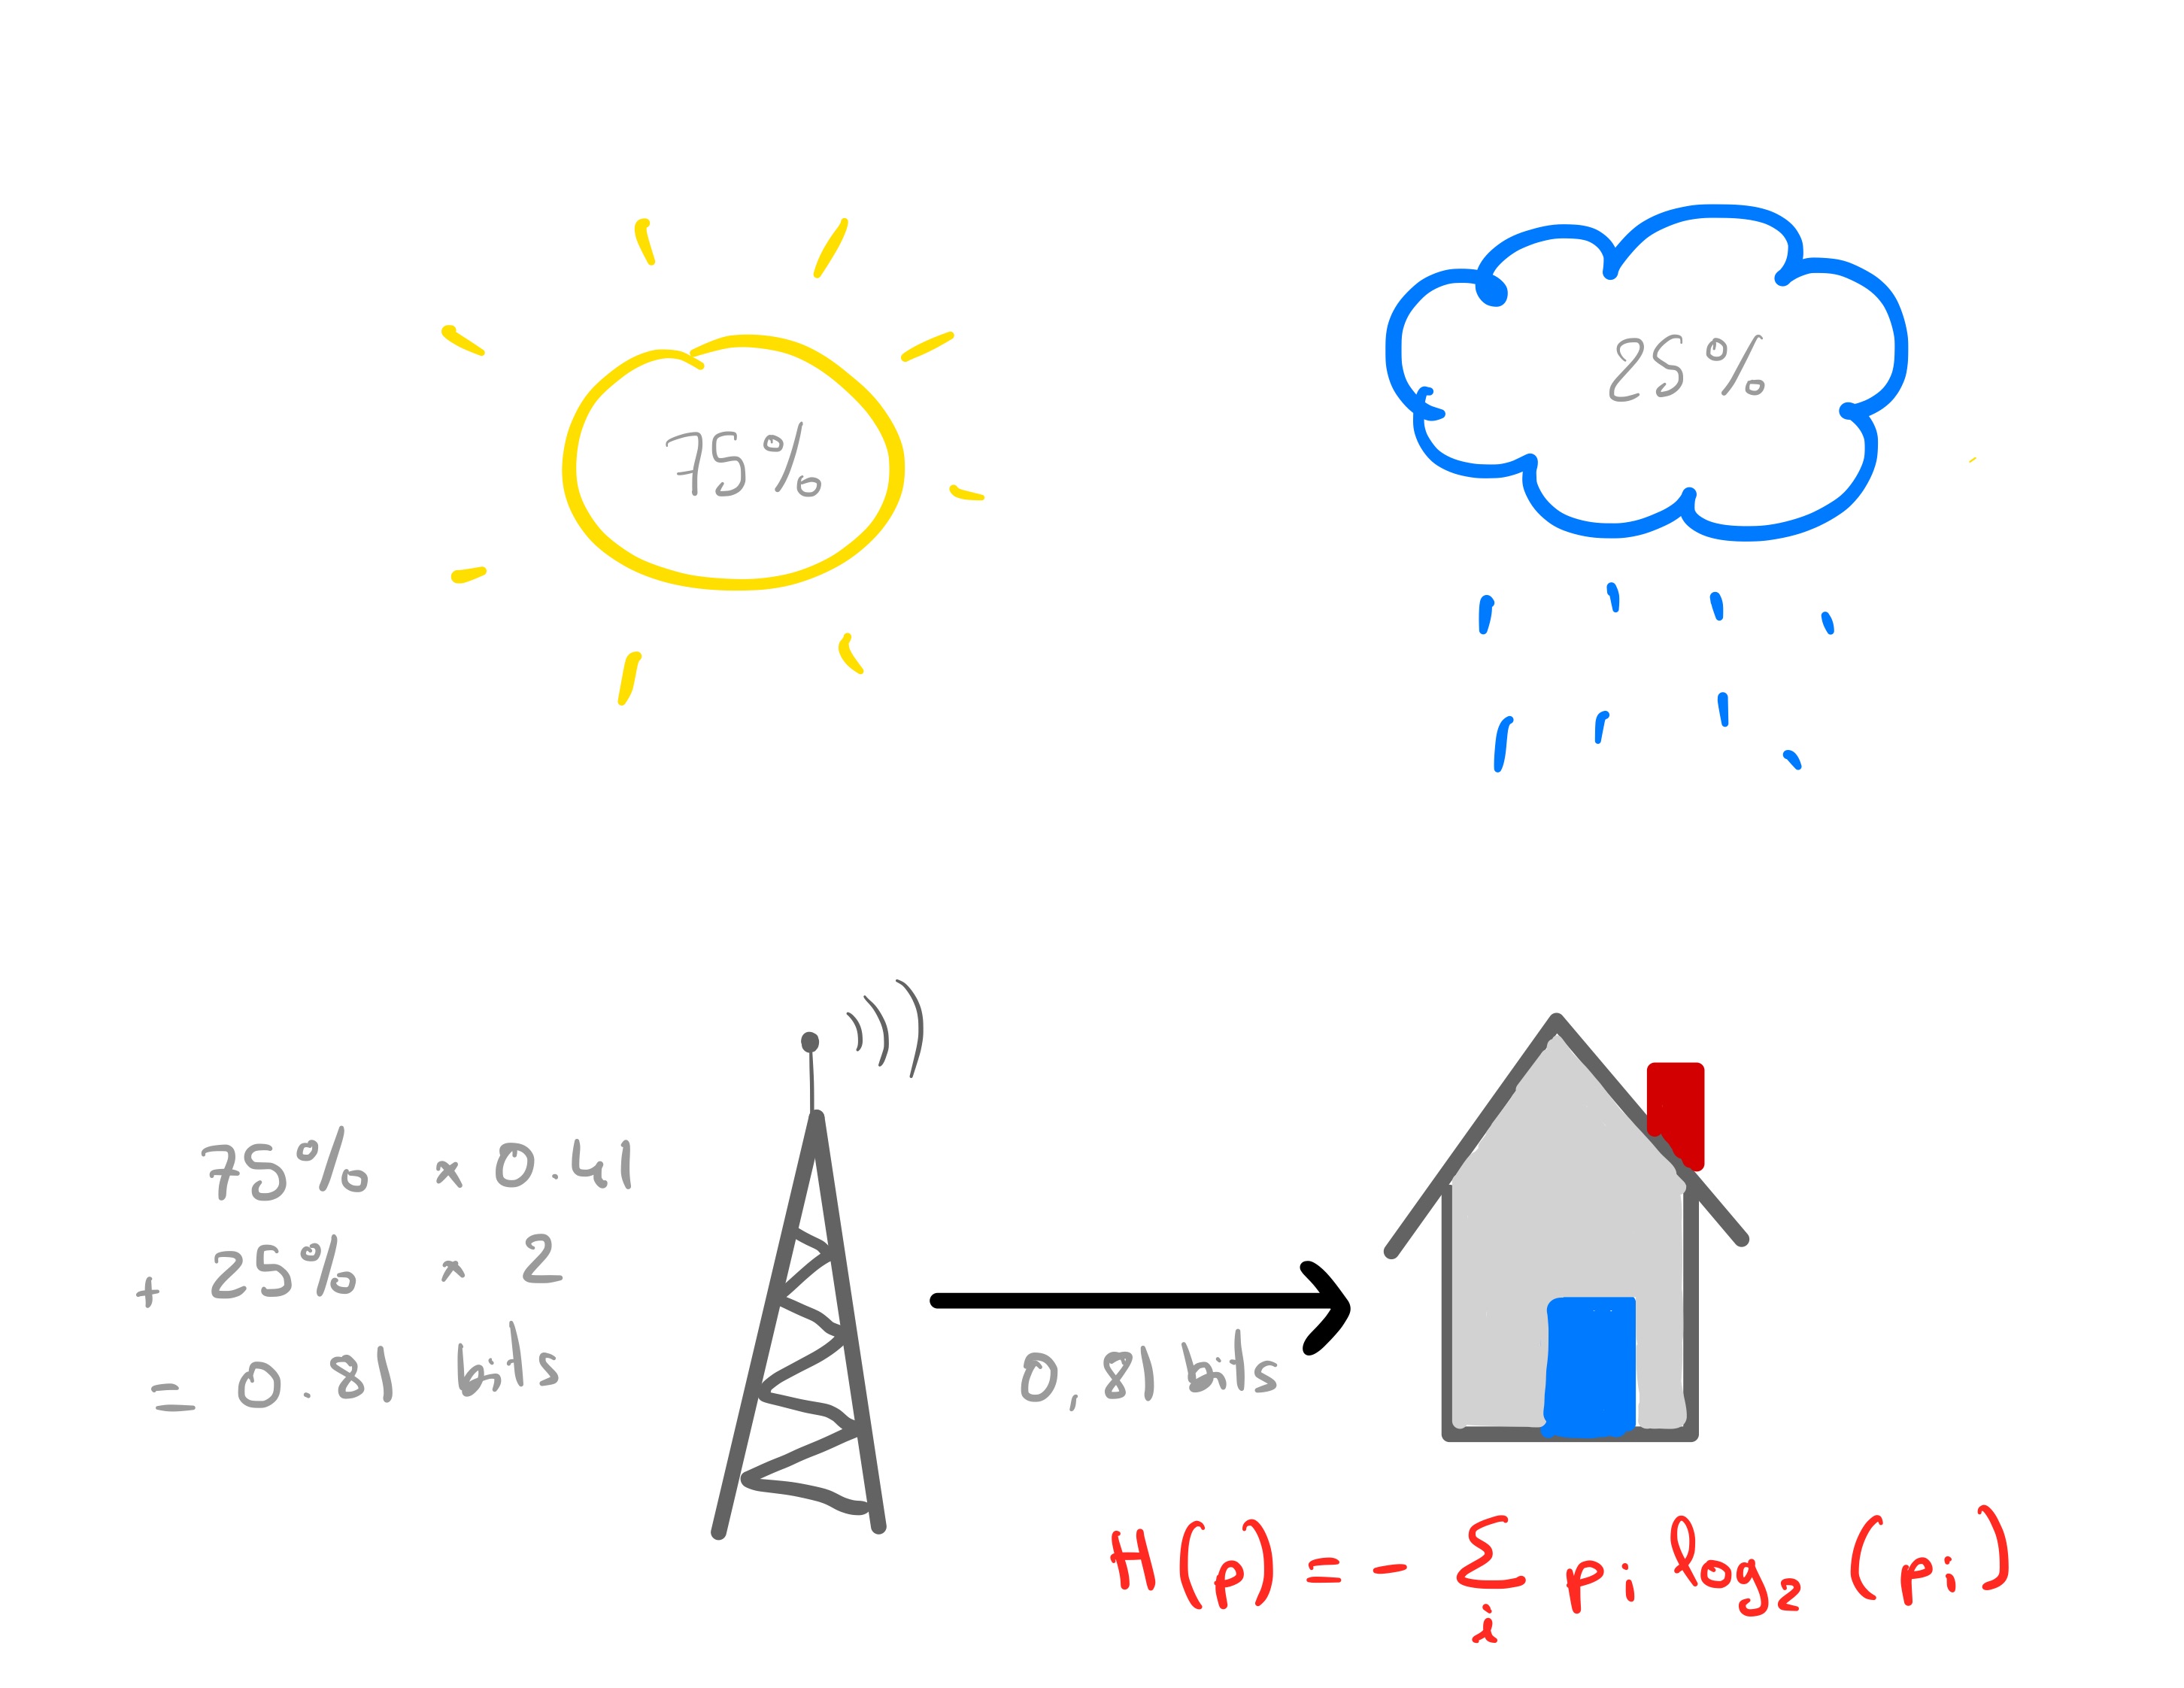 75%
25%
75% x 0.41
+ 25% x 2
= 0.81 bits
0,81 bits
H(p) = - Σ pi log₂ (pi)
i